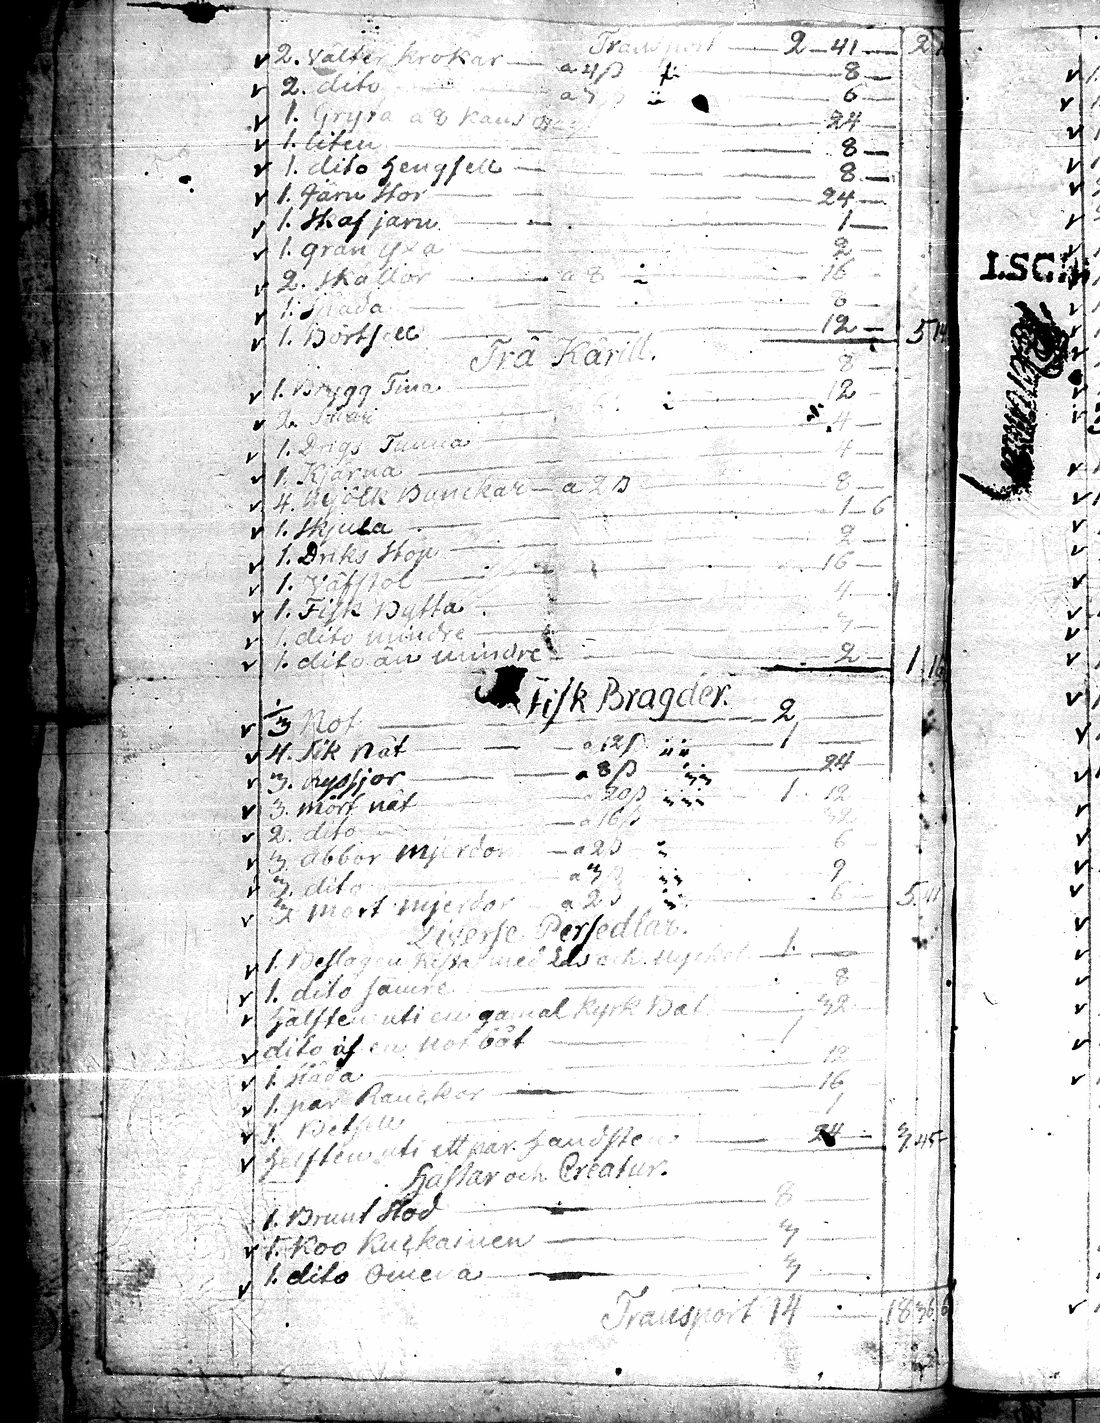 Transport 2 41
2. Välter krokar a 4 ß 8
2. dito a 3 6
1. Gryta a 8 kanor 24
1. liten 8
1. dito Hengsell 8
1. Järn Stör 24
1. Skafjärn 1
1. gran Yxa 2
2. Skållor a 8 16
1. Spada 8
1. Börtsell 12 5
Trä Kärill.
8
1. Brygg Tina 12
2. 4
1. Driks Tunna 4
1. Kjärna
4. Mjölk Bunckar a 2 ß 8
1. Skjula 1 6
1. Driks Stop 2
1. Väfstol 16
1. Fisk Bytta 4
1. dito mindre 3
1. dito än mindre 2 1 16
Fisk Bragder.
1/3 Not 2
4. Sik Nät a 12 ß 1
3. Ryssjor a 8 ß 24
3. mört nät a 20 ß 1 12
2. dito a 16 ß 32
3. Abbor Mjerdor a 2 ß 6
3. dito a 3 ß 9
3. Mört Mjerdor a 2 ß 6 5
Diverse Persedlar.
1. Beslagen Kista med Lås och Nyckel 1
1. dito sämre 8
Hälften uti en gamal Kyrk Båt 32
dito af en Not båt 1
1. Släda 12
1. par Ranckor 16
1. Betsell 1
Helften uti ett par Handsten 24 3 45
Hästar och Creatur.
1. Brunt Stod 8
1. Koo Kuckainen 3
1. dito Omena 3
Transport 14 18 36 6